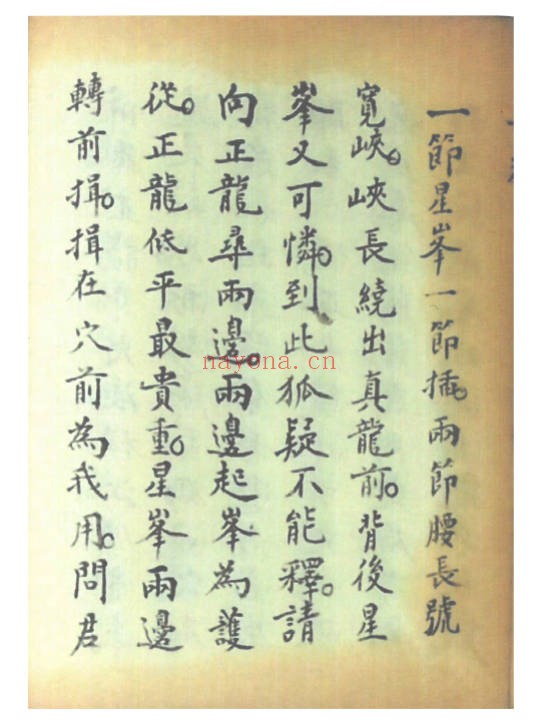 一節星峯一節插。兩節腰長號
寬峽。峽長繞出真龍前。背後星
峯又可憐。到此狐疑不能釋。請
向正龍尋兩邊。兩邊起峯為護
從。正龍低平最貴重。星峯兩邊
轉前揖。揖在穴前為我用。問君
nayona.cn